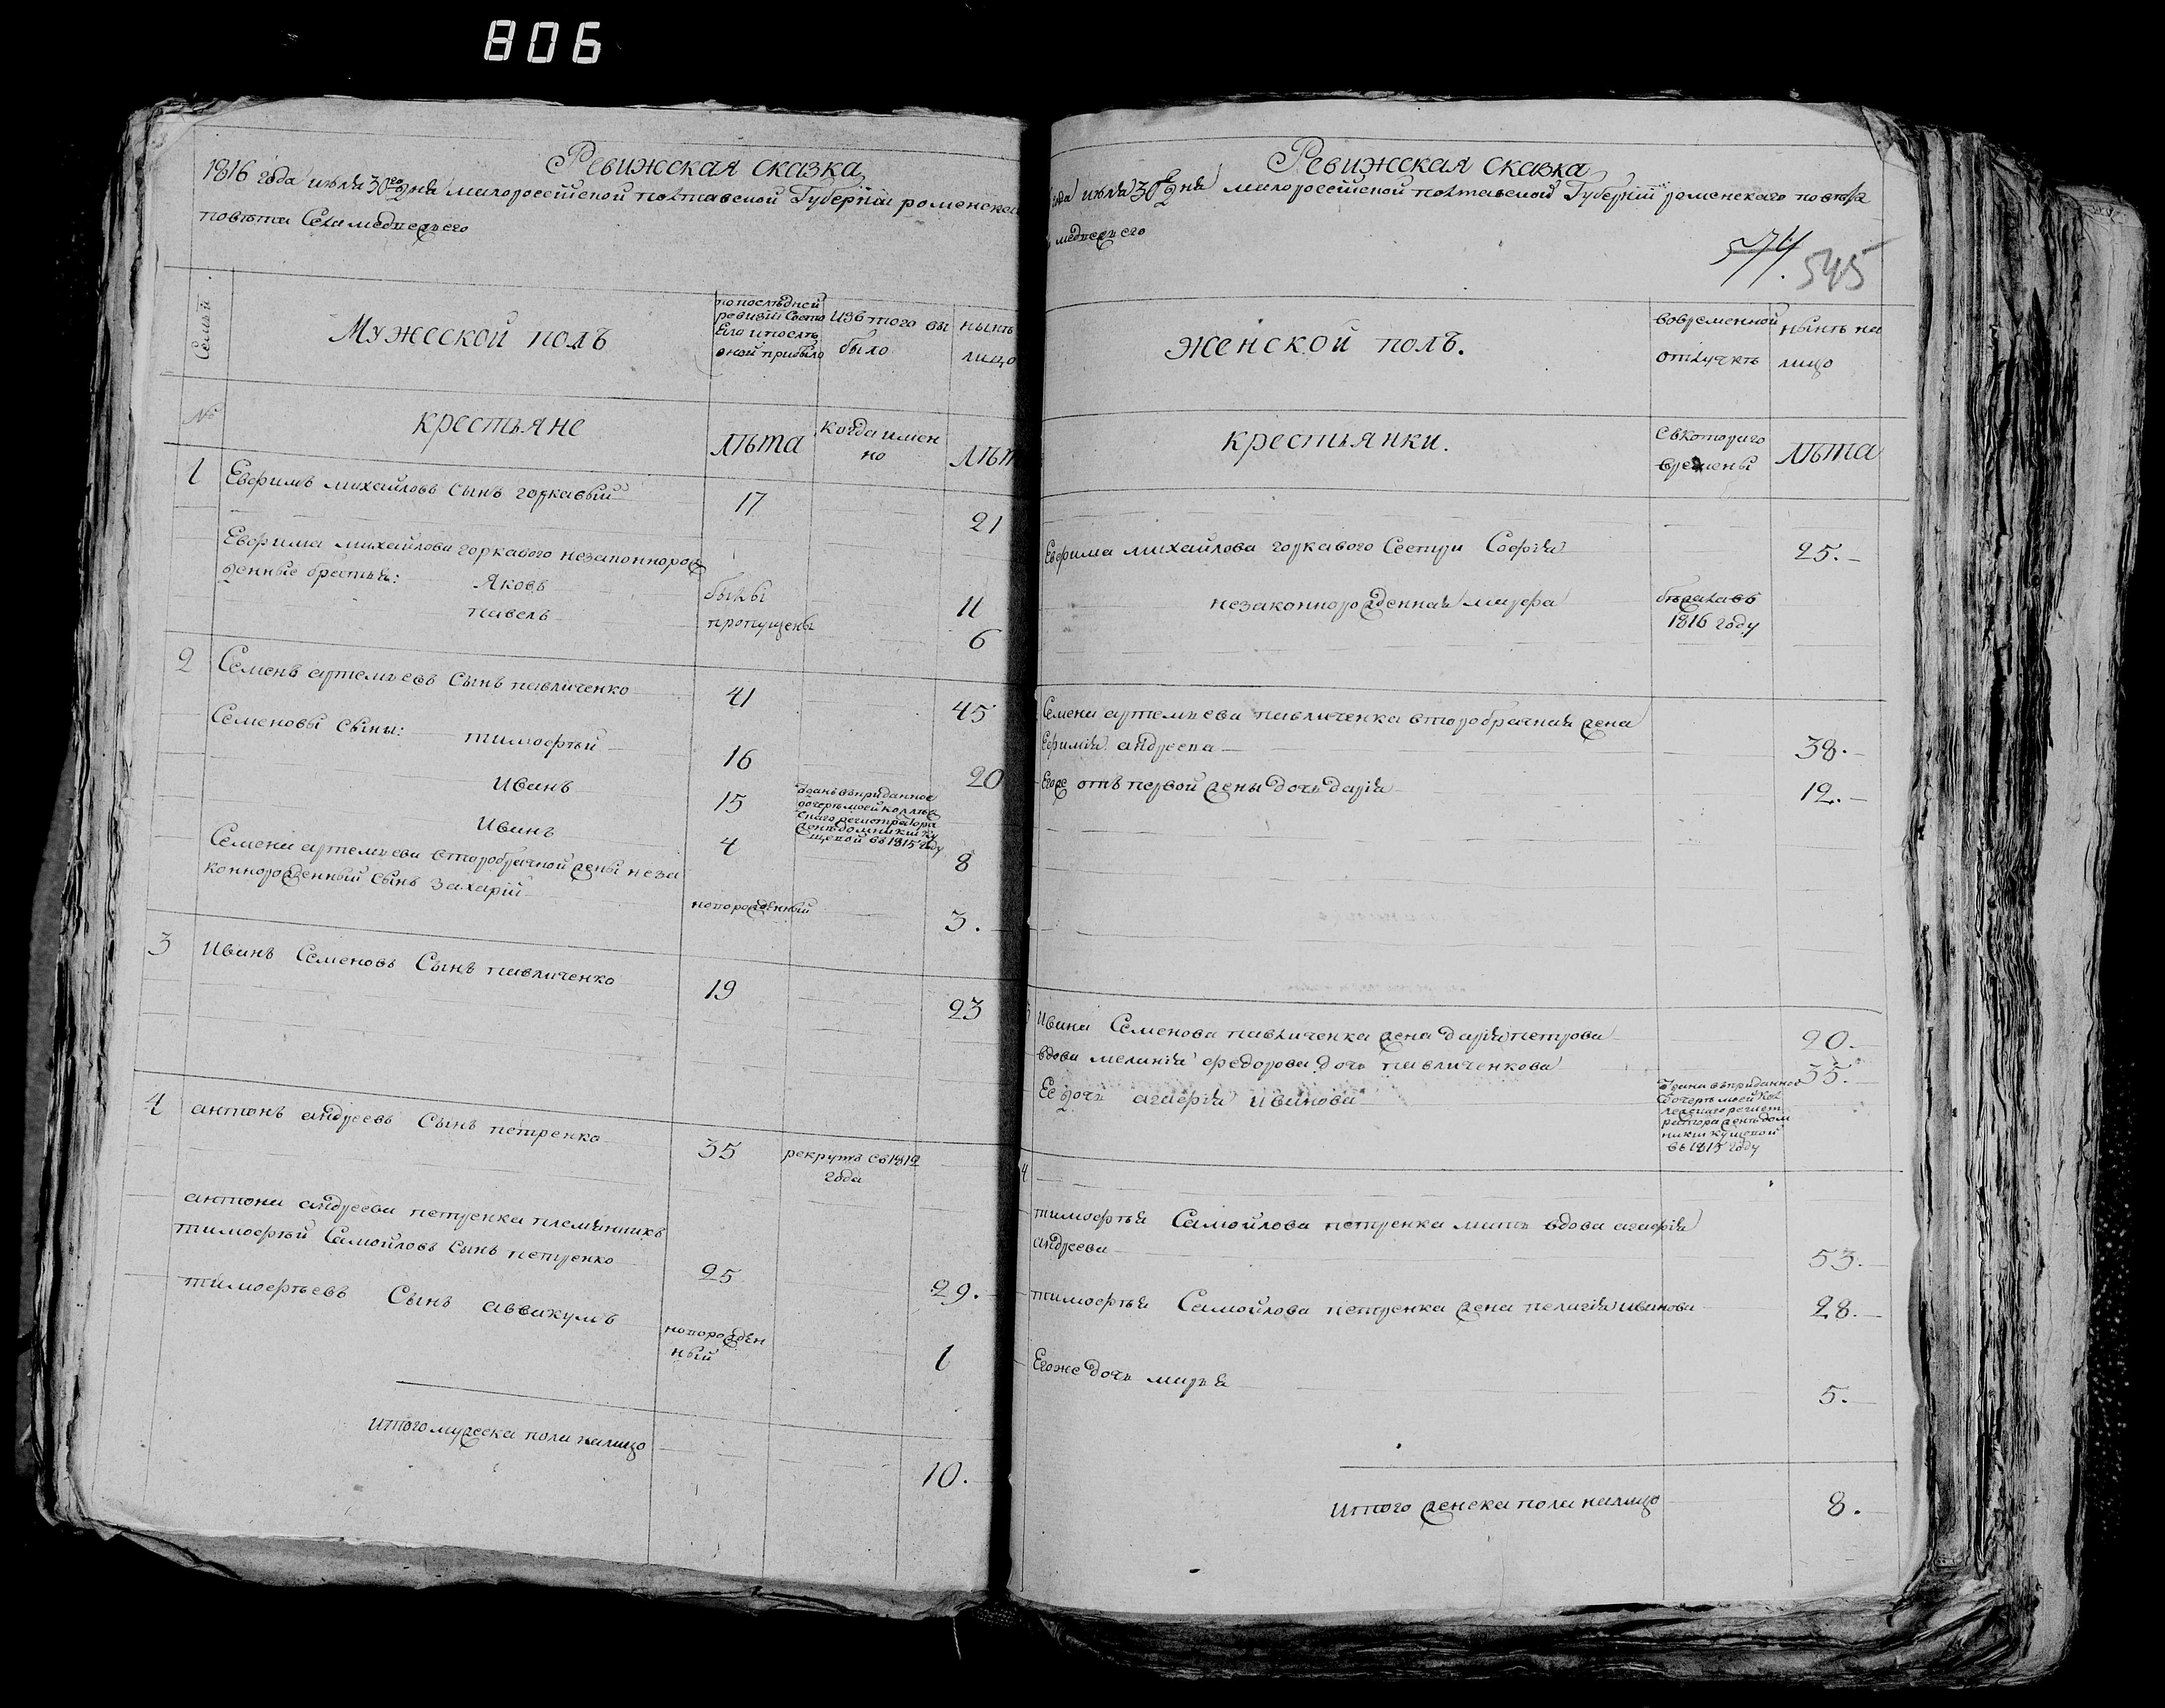 806
Ревижская сказка
1816 года июля 30го дня малоросейской полтавской Губернїи роменска
повета Села медвежего
Семьи
Мужеской полъ
по последней
ревизїи Состо
Ело и после
оной прибыло
Изътого вы
было
ныне
лицо
№
крестьяне
лѣта
когда имен
но
лѣт
1
Евфимъ михайловъ Сынъ горкавый
17
21
Евфима михайлова горкавого незаконнорож
денные братья:
Яковъ
были
11
павелъ
пропущены
6
2
Семенъ артемьевъ Сынъ павличенко
41
45
Семеновы Сыны:
тимофѣй
16
20
Иванъ
15
въприданное
дочере моей коллеж
скаго регистратора
жене домникии ку
щевой въ 1815 году
Иванъ
4
8
Семена артемьева второбрачной жены неза
коннорожденный Сынъ захарїй
новорожденный
3.
3
Иванъ Семеновъ Сынъ павличенко
19
23
4
антонъ андреевъ Сынъ петренко
35
рекрутъ Съ 1812
года
антона андреева петренка племянникъ
тимофѣй Самойловъ Сынъ петренко
25
29.
тимофѣевъ Сынъ аввакумъ
новорожден
ный
1
Итого мужеска пола налицо
10.
Ревижская сказка
года июля 30го дня малоросейской полтавской Губернїи роменскаго повета
медвежего
574.
545
Женской полъ.
вовременной
отлучкѣ
нынѣ на
лицо
крестьянки.
Съкотораго
времены
лѣта
Евфима михайлова горкавого Сестры Софїя
25.
незаконнорожденная марфа
бежала въ
1816 году
Семена артемьева павличенка второбрачная жена
Ефимїя андреева
38.
Егоже отъ первой жены дочь дарїя
12.
Ивана Семенова павличенка жена дарїя петрова
20.
вдова меланїя федорова дочь павличенкова
35.
Ее дочь агафїя Иванова
въприданное
дочере моей кол
лежскаго регист
ратора жене дом
никии кущевой
въ 1815 году
4
тимофѣя Самойлова петренка мать вдова агафїя
андреева
53.
тимофѣя Самойлова петренка жена пелагїя иванова
28.
Егоже дочь марья
5.
Итого женска пола налицо
8.